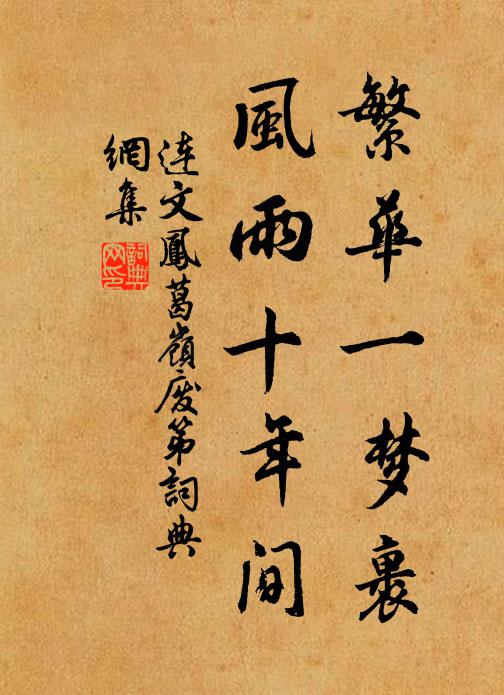 繁華一梦裏
風雨十年间
連文鳳葛嶺废第詞典
網集
詞典
网印